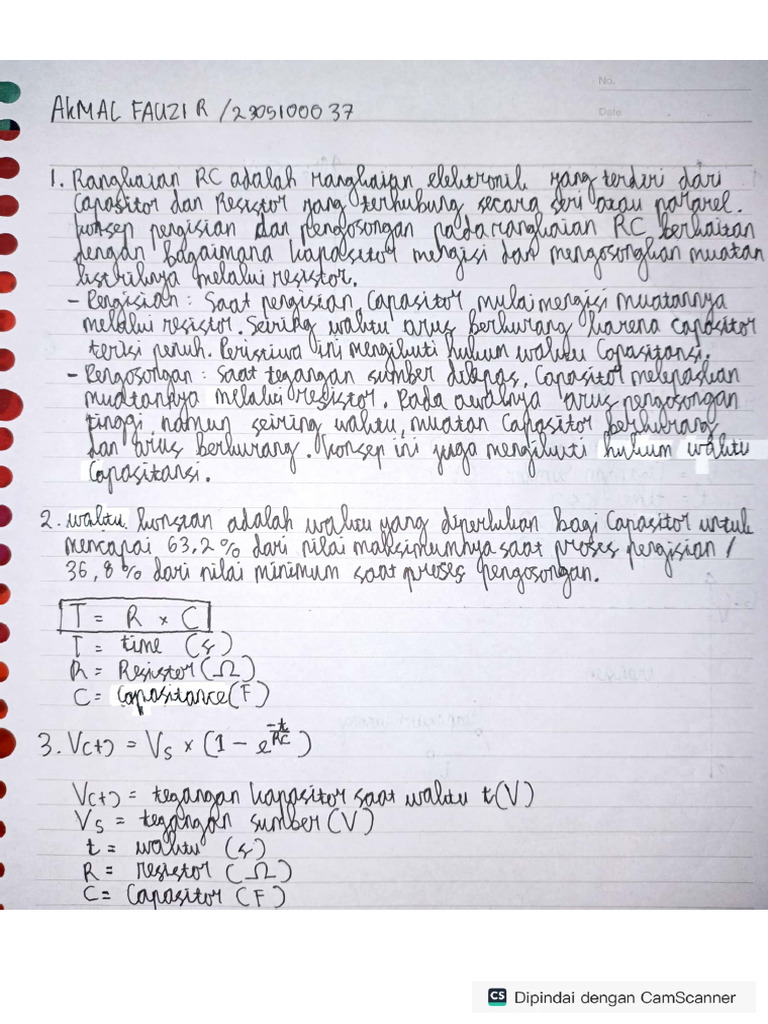 No.
Date
AKMAL FAUZI R / 23051000 37
1. Rangkaian RC adalah rangkaian elektronik yang terdiri dari
Capasitor dan Resistor yang terhubung secara seri atau pararel.
Konsep pengisian dan pengosongan pada rangkaian RC berkaitan
dengan bagaimana kapasitor mengisi dan mengosongkan muatan
listriknya melalui resistor.
- Pengisian : Saat pengisian, Capasitor mulai mengisi muatannya
melalui resistor. Seiring waktu arus berkurang karena capasitor
terisi penuh. Peristiwa ini mengikuti hukum waktu Capasitansi.
- Pengosongan : Saat tegangan sumber dilepas, Capasitor melepaskan
muatannya melalui resistor. Pada awalnya arus pengosongan
tinggi, namun seiring waktu, muatan Capasitor berkurang
dan arus berkurang. Konsep ini juga mengikuti hukum waktu
Capasitansi.
2. waktu konstan adalah waktu yang diperlukan bagi Capasitor untuk
mencapai 63,2 % dari nilai maksimumnya saat proses pengisian /
36,8 % dari nilai minimum saat proses pengosongan.
T = R × C
T = time (s)
R = Resistor (Ω)
C = Capasitance (F)
3. V(t) = Vs × (1 - e^(-t/RC))
V(t) = tegangan kapasitor saat waktu t (V)
Vs = tegangan sumber (V)
t = waktu (s)
R = resistor (Ω)
C = Capasitor (F)
CS Dipindai dengan CamScanner